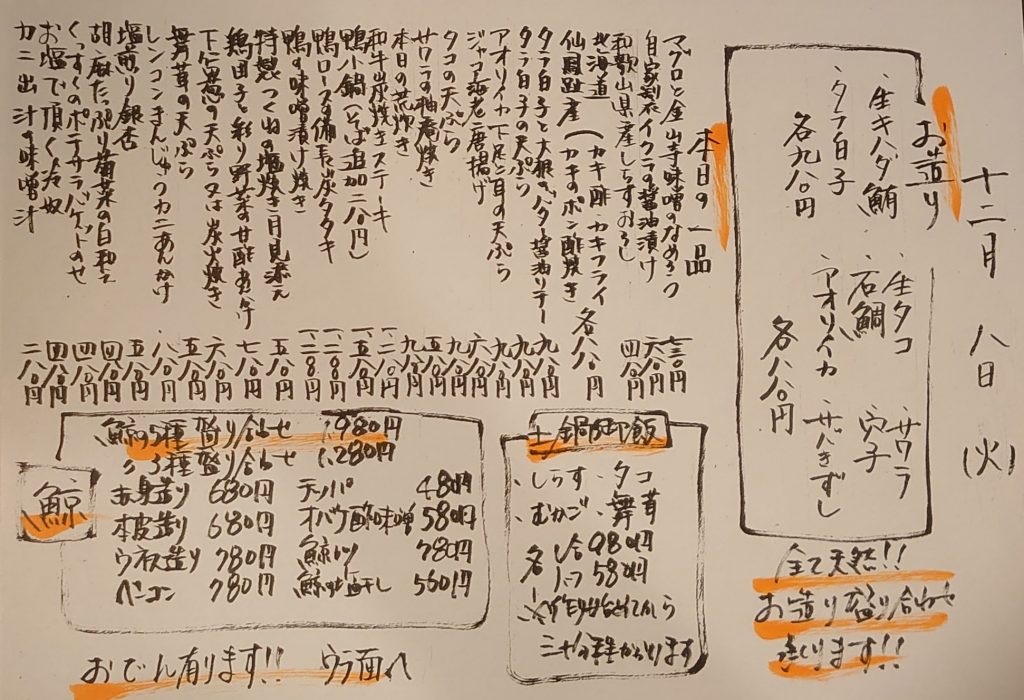 十二月 八日 (火)
お造り
・生キハダ鮪
・タラ白子
各九八〇円
・生タコ ・サワラ
・石鯛 ・穴子
・アオリイカ ・サバきずし
各八八〇円
全て天然!!
お造り盛り合わせ
本日の一品
マグロと金山寺味噌のなめろう 七三〇円
自家製イクラの醤油漬け 六八〇円
和歌山県産しらすおろし 四八〇円
北海道
仙鳳趾産 (カキ酢・カキフライ カキのポン酢焼き 各八八〇円
タラ白子と大根のバター醤油ソテー 九八〇円
タラ白子の天ぷら 九八〇円
ジャコ海老二度揚げ 九八〇円
アオリイカ下足と耳の天ぷら 六八〇円
タコの天ぷら 九八〇円
サワラの柚庵焼き 九八〇円
本日の荒炊き 五八〇円
和牛炭焼きステーキ
鴨小鍋(そば追加二八〇円)
鴨ロースの備長炭タタキ
鴨の味噌漬け焼き
特製つくねの塩焼き月見添え 五八〇円
鶏団子と彩り野菜の甘酢あんかけ 七八〇円
下仁田葱の天ぷら又は炭火焼き 六八〇円
舞茸の天ぷら 五八〇円
レンコンまんじゅうカニあんかけ 八八〇円
塩煎り銀杏 五八〇円
胡麻たっぷり菊菜の白和え 四八〇円
くっすくのポテサラバゲットのせ 四八〇円
お塩で頂く冷奴 四八〇円
カニ出汁の味噌汁 二八〇円
土鍋御飯
・しらす ・タコ
・むかご ・舞茸
各 1合 980円
1/2 580円
鯨
鯨の5種盛り合わせ 1,980円
〃 3種盛り合わせ 1,280円
赤身造り 680円 テッパ 480円
本皮造り 680円 オバケ酢味噌 580円
ウネス造り 780円 鯨カツ 780円
ベーコン 780円 鯨の塩干し 560円
おでん有ります!! ウラ面へ